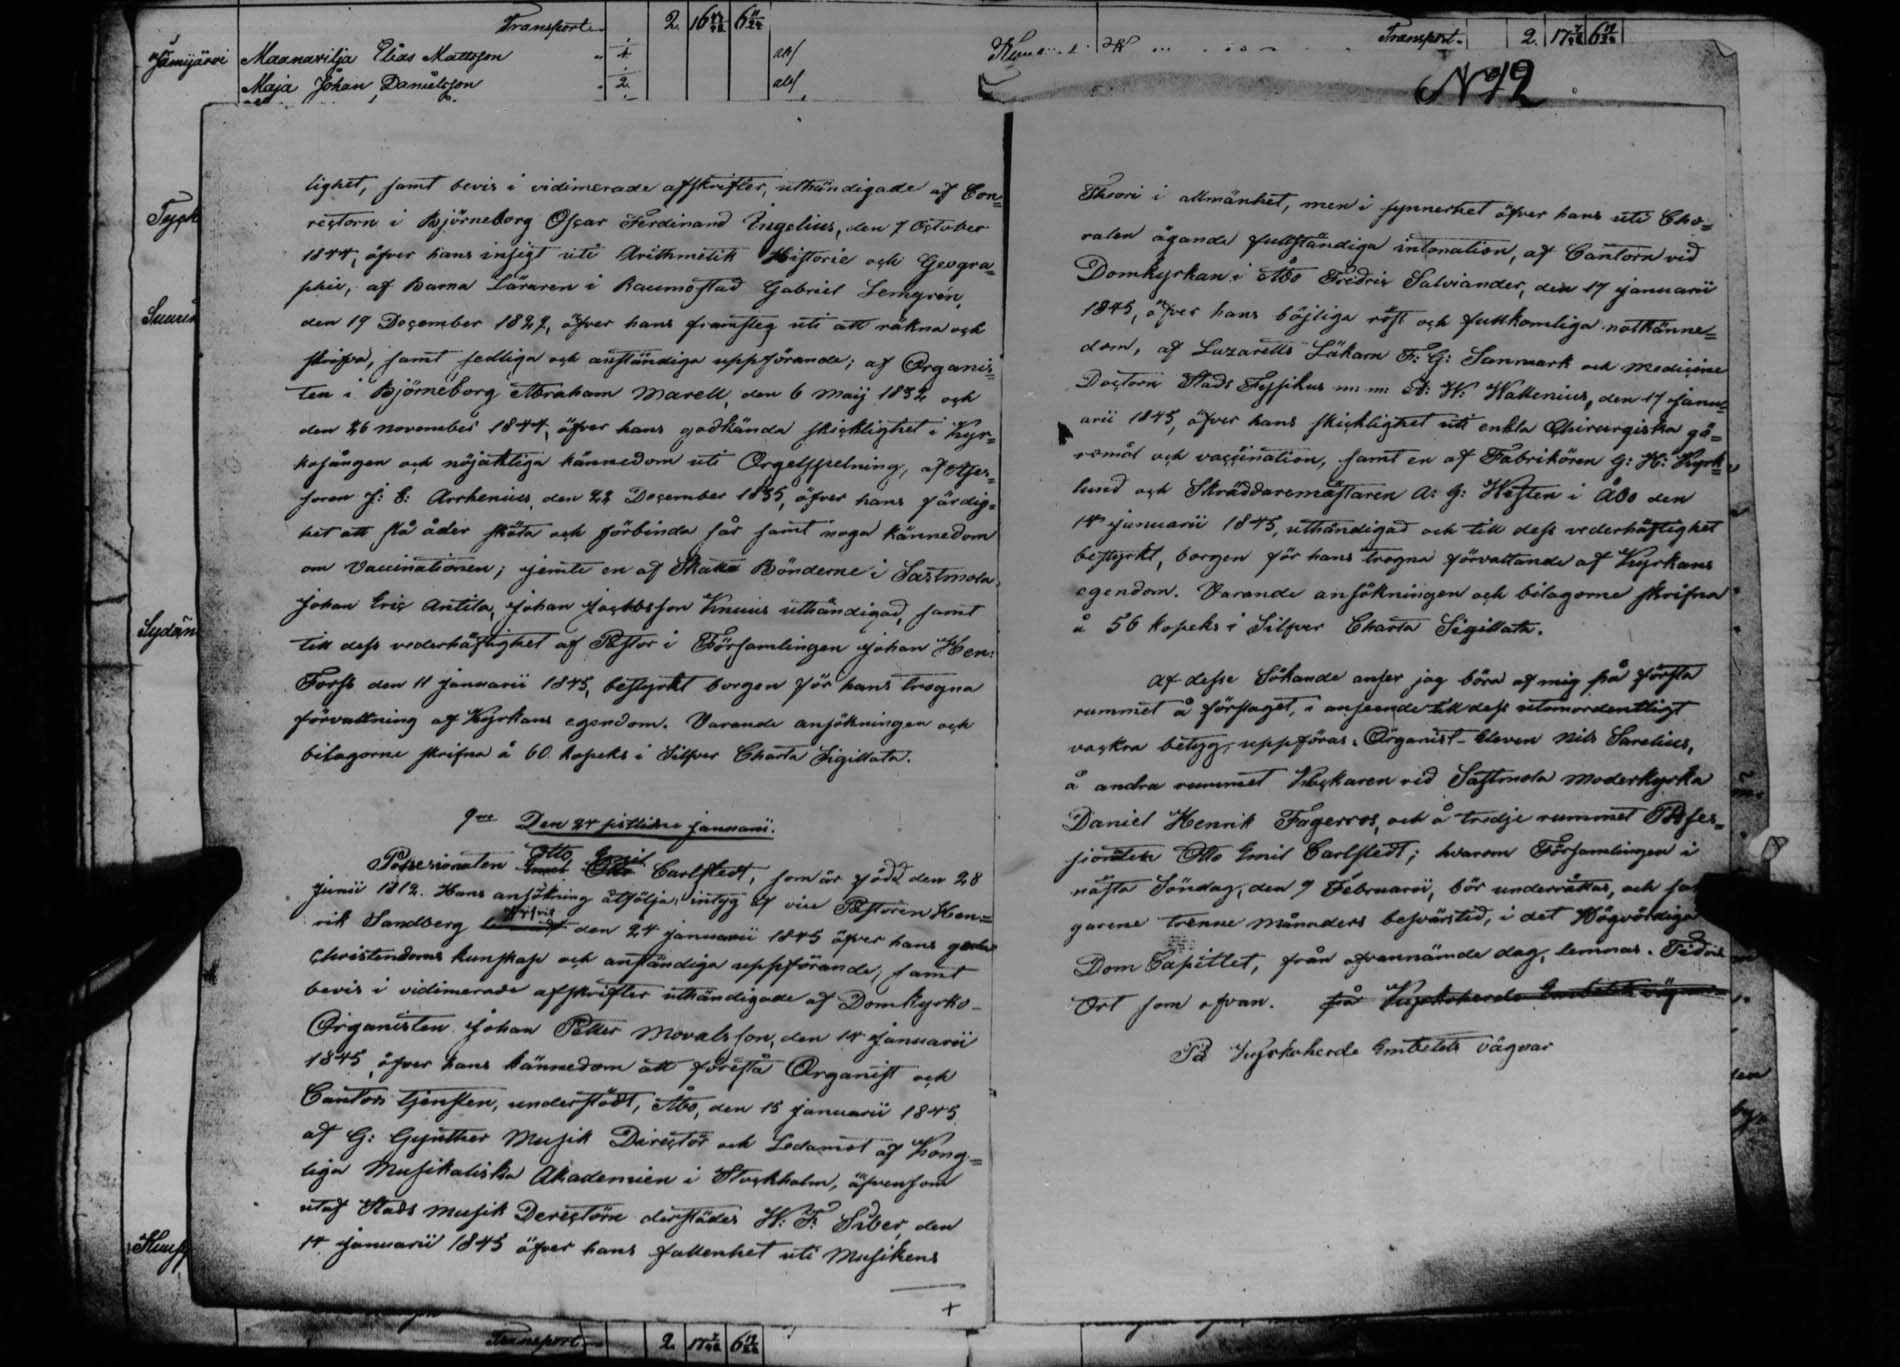 Transport 2. 16 6
Jämijärvi Maanavilja Elias Mattsson
Maja Johan Danielsson 2
Transport. 2. 17 6
N 42
Sydän
lighet, samt bevis i vidimerade afskrifter, uthändigade af Con=
rectorn i Björneborg Oscar Ferdinand Ingelius, den 7 October
1844, öfver hans insigt uti Arithmetik Historie och Geogra=
phie, af Barna Läraren i Raumo stad Gabriel Lemgrén,
den 19 December 1829, öfver hans framsteg uti att räkna och
skrifva, samt sedliga och anständiga uppförande; af Organis=
ten i Björneborg Abraham Marell, den 6 Maij 1832 och
den 26 November 1844, öfver hans godkända skicklighet i Kyr=
kosången och nöjaktiga kännedom uti Orgelspelning, af Asses=
soren J: E: Arrhenius, den 22 December 1835, öfver hans färdig=
het att slå åder sköta och förbinda sår samt noga kännedom
om Vaccinationen; jemte en af Skatte Bönderne i Sastmola
Johan Eric Antila, Johan Jacobsson Knuus uthändigad, samt
till dess vederhäftighet af Pastor i Församlingen Johan Hen:
Forss den 11 Januarii 1845, bestyrkt borgen för hans trogna
förvaltning af Kyrkans egendom. Varande ansökningen och
bilagorne skrifna å 60 kopeks i Silfver Charta Sigillata.
9no Den 24 sistlidne Januarii.
Otto Emil
Possessionaten Emil Otto Carlstedt, som är född den 28
Junii 1812. Hans ansökning åtfölja: intyg af vice Pastoren Hen=
rik Sandberg den 24 Januarii 1845 öfver hans goda
Christendoms kunskap och anständiga uppförande, samt
bevis i vidimerade afskrifter uthändigade af Domkyrko-
Organisten Johan Petter Movalsson, den 14 Januarii
1845, öfver hans kännedom att förestå Organist och
Cantors tjensten, understödt, Åbo, den 15 Januarii 1845
af G: Gynther Musik Director och Ledamot af Kong=
liga Musikaliska Akademien i Stockholm, äfvensom
utaf Stads Musik Derectörn derstädes W: F: Siber, den
14 Januarii 1845 öfver hans fallenhet uti Musikens
+
Theori i allmänhet, men i synnerhet öfver hans uti Cho=
ralen ägande fullständiga intonation, af Cantorn vid
Domkyrkan i Åbo Fredric Salviander, den 17 Januarii
1845, öfver hans böjliga röst och fullkomliga notkänne=
dom, af Lazaretts Läkarn F: G: Sanmark och Medicine
Doctorn Stads Fysikus m: m: A: W: Wallenius, den 17 Janu=
arii 1845, öfver hans skicklighet uti enkla Chirurgiska gö=
romål och vaccination, samt en af Fabrikören G: H: Kyrk=
lund och Skräddaremästaren A: G: Hesten i Åbo den
14 Januarii 1845, uthändigad och till dess vederhäftighet
bestyrkt, borgen för hans trogna förvaltande af Kyrkans
egendom. Varande ansökningen och bilagorne skrifna
å 56 kopeks i Silfver Charta Sigillata.
Af desse Sökande anser jag böra af mig på första
rummet å förslaget, i anseende till dess utomordentligt
vackra betyg, uppföras. Organist-Eleven Nils Sarelius,
å andra rummet Klockaren vid Sastmola Moderkyrka
Daniel Henrik Fagerros, och å tredje rummet Posses=
sionaten Otto Emil Carlstedt; hvarom Församlingen i
nästa Söndag, den 9 Februarii, bör underrättas, och
garene trenne månaders besvärstid, i det Högvördiga
Dom Capitlet, från ofvannämde dag, lemnas. Tid och
Ort som ofvan. på Kyrkoherde Embetets vägnar
På Kyrkoherde Embetets vägnar
Transport 2. 17 6